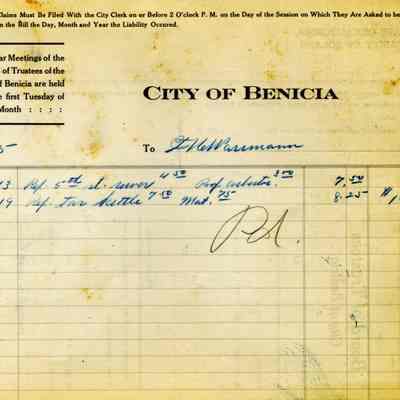 Claims Must Be Filed With the City Clerk on or Before 2 O'clock P. M. on the Day of the Session on Which They Are Asked to be
n the Bill the Day, Month and Year the Liability Occured.
ar Meetings of the
of Trustees of the
f Benicia are held
e first Tuesday of
Month : : : :
CITY OF BENICIA
5
To
13 Rep. 5th st. sewer 4.50 3.00 7.50
19 Rep. Tar Kettle 7.50 Mat. .75 8.25